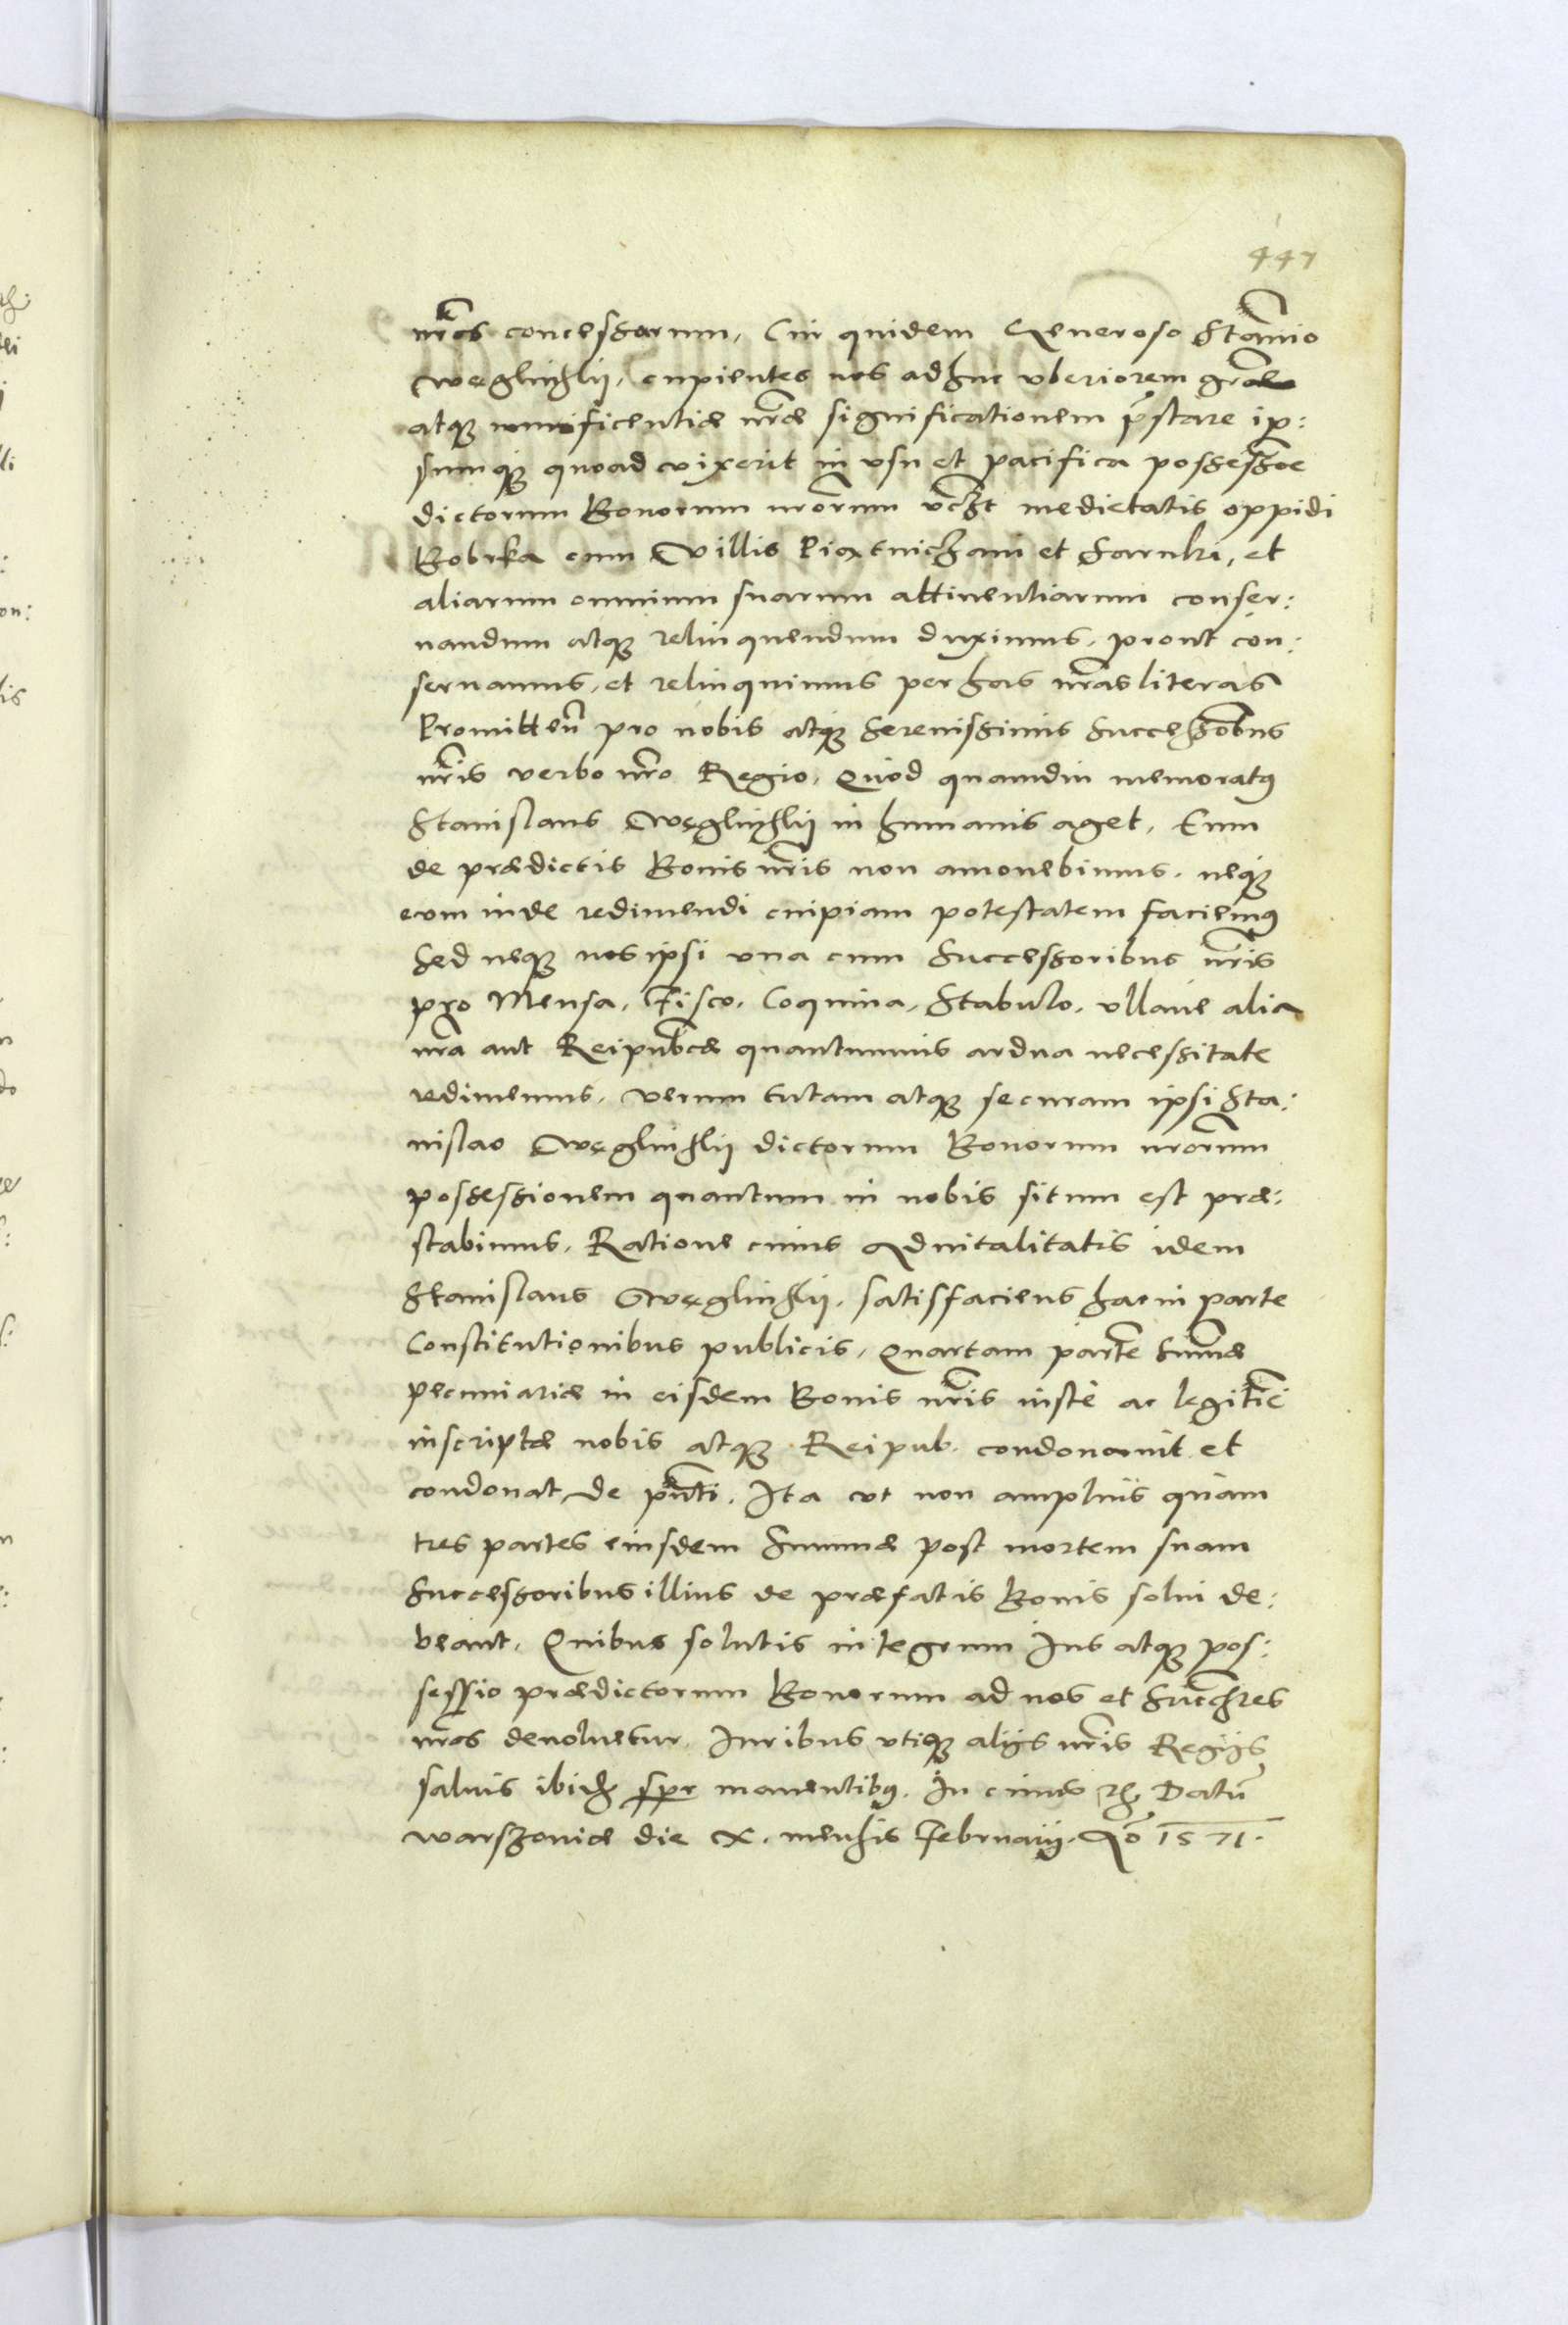 447
nr̃as concessarum, Cui quidem Generoso Stanio
Węgliński, cupientes nos adhuc vberiorem grãe
atq̃ munificentiæ nr̃æ significationem p̃stare ip:
sumq̃ quoad vixerit in vsu et pacifica possessioe
dictorum Bonorum nrorum vcz̃t medietatis oppidi
Bobrka cum Villis Piątniczani et Sarnki, et
aliarum omnium suarum attinentiarum conser:
uandum atq̃ relinquendum duximus, prout con:
seruamus, et relinquimus per has nr̃as literas
Promitteñ pro nobis atq̃ Serenissimis Successoribus
nr̃is verbo nr̃o Regio, Quod quamdiu memoratus
Stanislaus Węgliński in humanis aget, Eum
de prædictis Bonis nr̃is non amouebimus, neq̃
eum inde redimendi cuipiam potestatem faciemus
Sed neq̃ nos ipsi vna cum Successoribus nr̃is
pro Mensa, Fisco, Coquina, Stabulo, vllaue alia
nr̃a aut Reipublcæ quantumuis ardua necessitate
redimemus, verum tutam atq̃ securam ipsi Sta:
nislao Węgliński dictorum Bonorum nrorum
possessionem quantum in nobis situm est præ:
stabimus, Ratione cuius Aduitalitatis idem
Stanislaus Węgliński, satisfaciens hac in parte
Constitutionibus publicis, Quartam parte Sum̃æ
pecuniariæ in eisdem Bonis nr̃is iuste ac legitime
inscriptæ nobis atq̃ Reipub. condonauit et
condonat de pñti. Ita vt non amplius quàm
tres partes eiusdem Summæ post mortem suam
Successoribus illius de præfatis Bonis solui de:
beant, Quibus solutis integrum Ius atq̃ pos:
sessio prædictorum Bonorum ad nos et Succẽres
nr̃os deuoluetur, Iuribus vtiq̃ alijs nr̃is Regijs
saluis ibid̃ spr manentibus. In cuius rei Datũ
Warszouiæ die X. mensis Februarij. Aõ 1571.